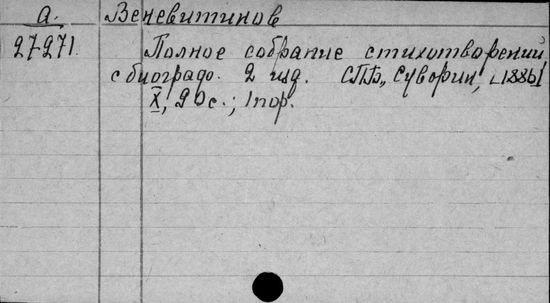 а. Веневитинов
27-271. Полное собрание стихотворений
с биограф. 2 изд. СПБ., Суворин, [1886]
X, 90 с.; 1 пор.